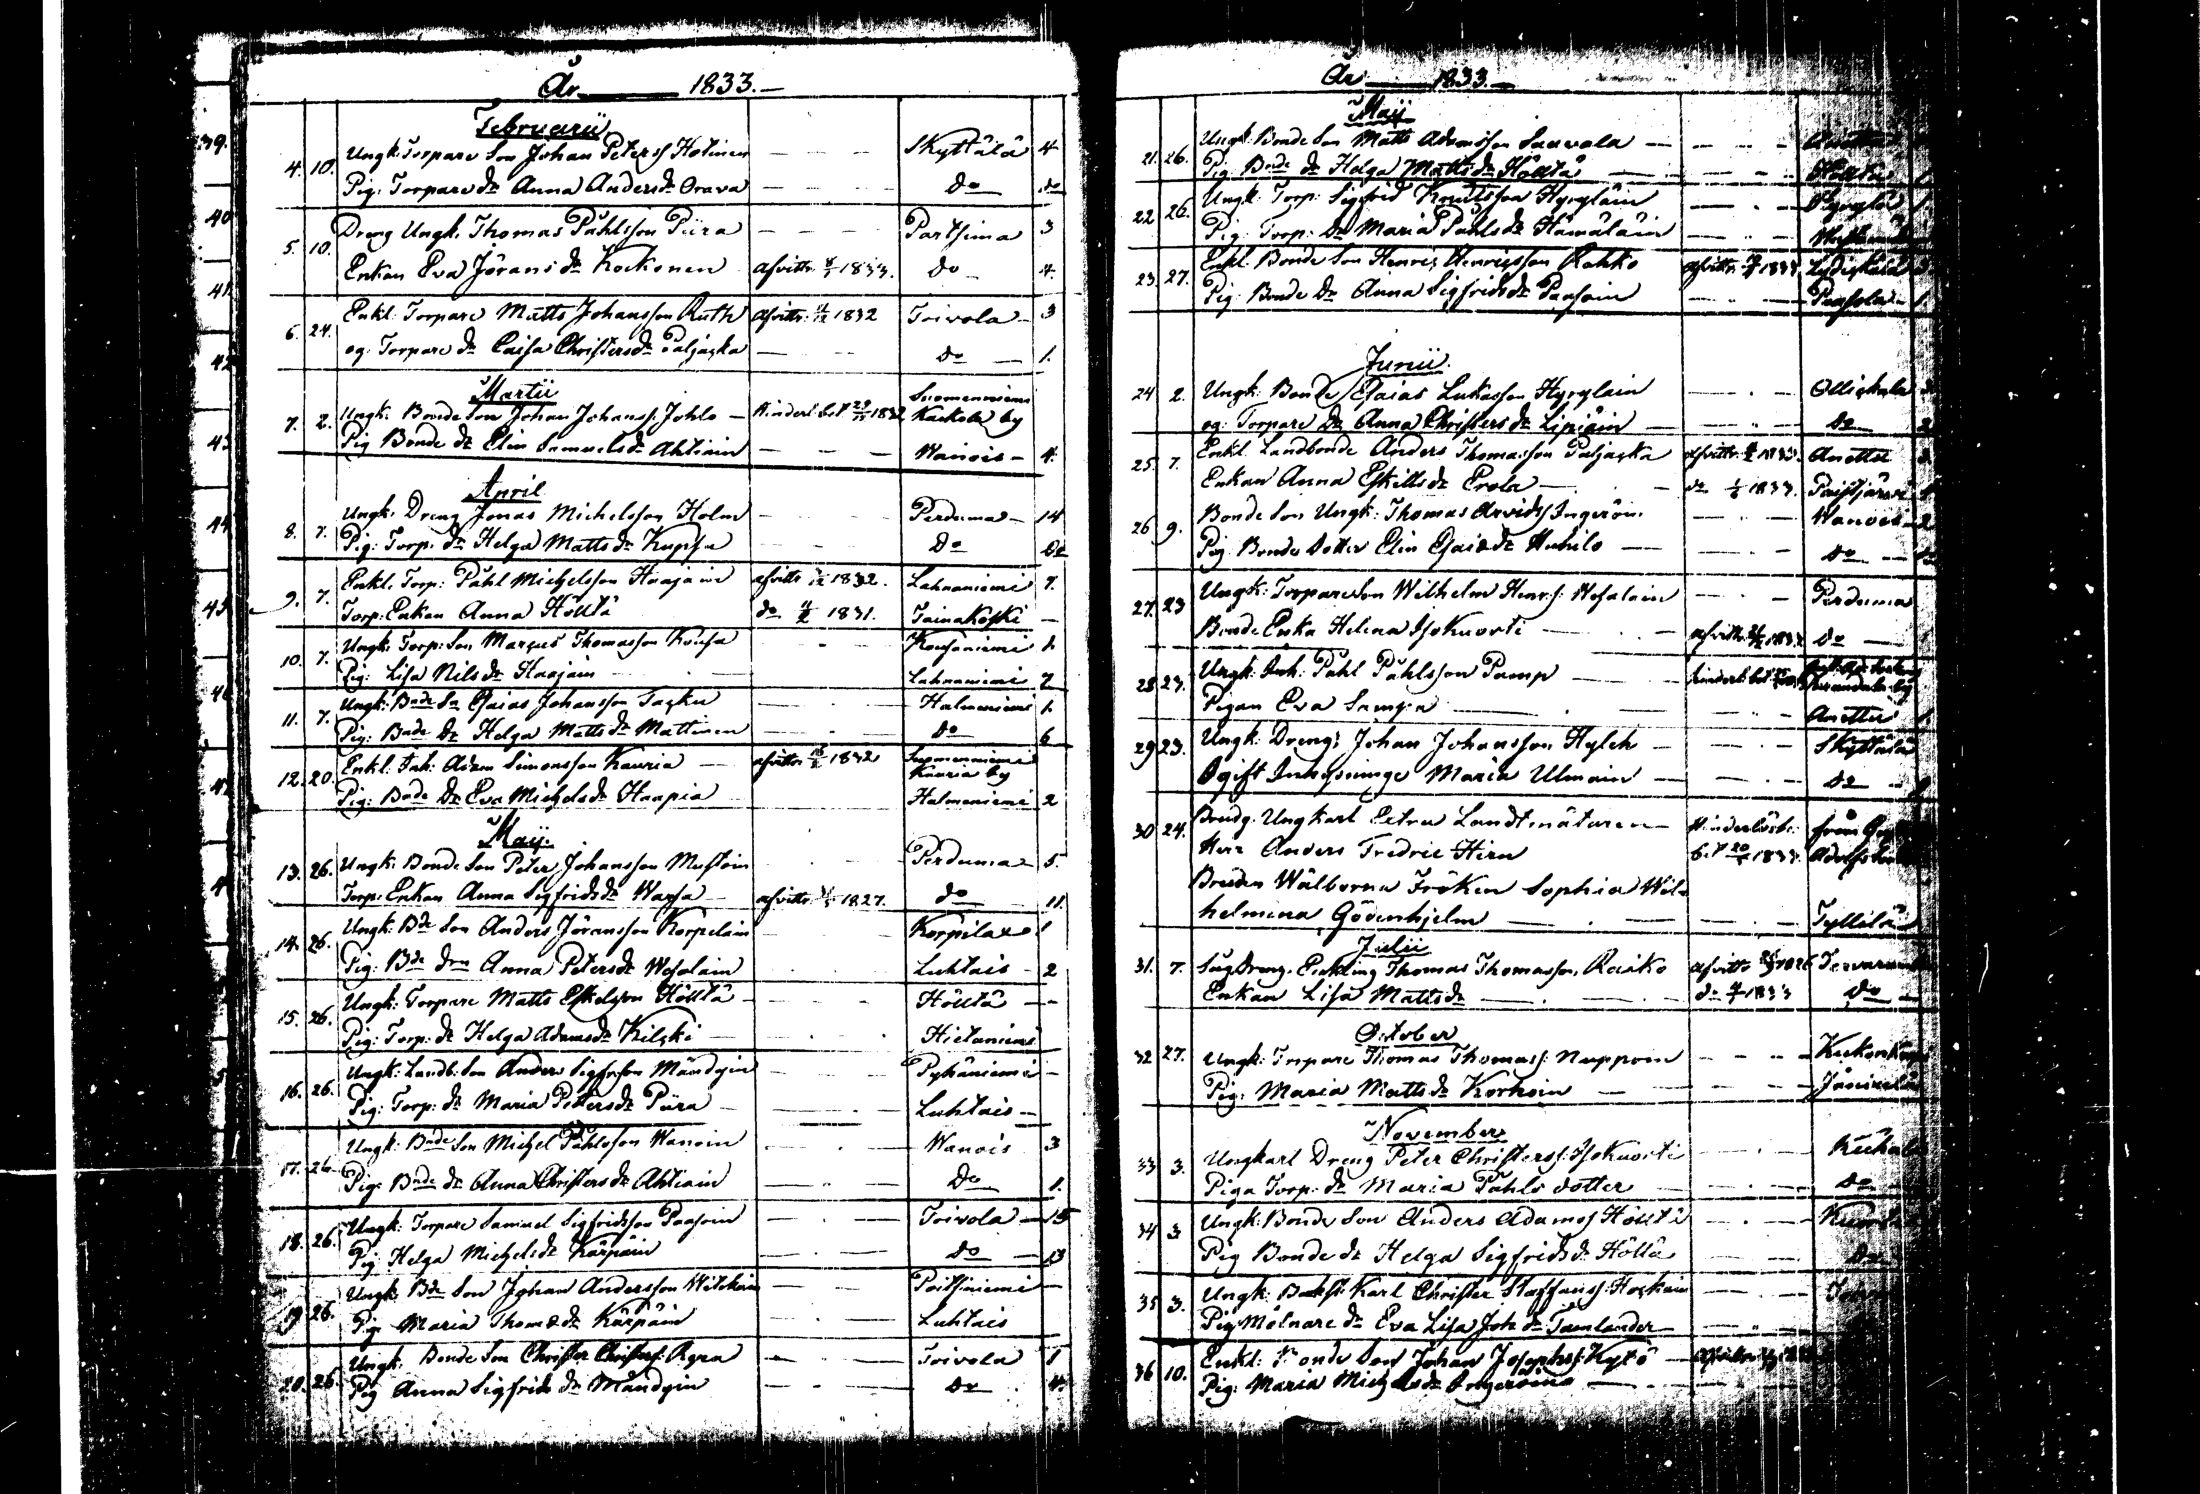 År 1833.
Februarii
4. 10. Ungk: Torpare Son Johan Peterss Hotinen Skyttälä 4
Pig: Torpare dr Anna Anders dr Orava do do
5. 10. Dreng Ungk: Thomas Påhlsson Piira Partsima 3
Enkan Eva Jörans dr Kockonen afvittr. 1833. do 4.
6. 24. Enkl: Torpare Matts Johansson Ruth afvittr. 1832 Toivola 3
og: Torpare dr Caisa Christers dr Paljacka do 1.
Martii
7. 2. Ungk: Bonde Son Johan Johanss: Johlo Hinderl. bet 1832 Suomenniemi Kaukola by
Pig Bonde dr Elin Samuels dr Ahtiain Wanois 4.
April
8. 7. Ungk: Dreng Jonas Michelsson Holm Perduma 14
Pig: Torp. dr Helga Matts dr Kupsa Do Do
9. 7. Enkl. Torp: Påhl Michelsson Haajain afvittr 1832. Lahnaniemi 7.
Torp: Enkan Anna Höltä do 1831. Tainakoski
10. 7. Ungk: Torp: Son Marcus Thomasson Kousa Kousaniemi 1.
Pig: Lisa Nils dr Haajain Lahnaniemi 7
11. 7. Ungk: Bnde Sn Esaias Johansson Tasku Halmeniemi 1.
Pig: Bnde Dr Helga Matts dr Mattinen do 6
12. 20. Enkl: Inh: Adam Simonsson Kauria afvittr 1832 Suomenniemi Kauria by
Pig: Bnde Dr Eva Michels dr Haapia Halmeniemi 2
Maij.
13. 26. Ungk: Bonde Son Peter Johansson Mustoin Perduma 5
Torp: Enkan Anna Sigfrids dr Wapsa afvittr 1827. do 11.
14. 26. Ungk: Bde Son Anders Jöransson Korpelain Korpila 1
Pig: Bde dr Anna Peters dr Wesalain Luhtais 2
15. 26. Ungk: Torpare Matts Eskelsson Höltä Höltä
Pig: Torp: dr Helga Adams dr Kilski Hietaniemi
16. 26. Ungk: Landb: Son Anders Sigfrson Mändyin Pyhäniemi
Pig: Torp: dr Maria Peters dr Piira Luhtais
17. 26 Ungk: Bnde Son Michel Påhlsson Wanoin Wanois 3
Pig: Bnde dr Anna Christers dr Ahtiain Do 1.
18. 26. Ungk: Torpare Samuel Sigfridsson Paasoin Toivola 15
Pig: Helga Michels dr Kärpäin do 13
19 26. Ungk: Bde Son Johan Andersson Witikain Poitsiniemi
Pig Maria Thoms dr Kärpäin Luhtais
20. 26. Ungk: Bonde Son Christer Christers: Rgra Toivola 1
Pig Anna Sigfrids dr Mändyin do 4.
År 1833.
Maij
21. 26. Ungk: Bonde Son Matts Adamsson Sauvala
Pig: Bnde dr Helga Matts dr Höltä
22 26. Ungk: Torp: Sigfrid Knutsson Hyrylain
Pig: Torp: Dr Maria Påhls dr Hämäläin
23. 27. Enkl: Bonde Son Henric Henricsson Rahko afvittr. 1833
Pig: Bonde Dr Anna Sigfrids dr Paasoin Paasola 1.
Junii.
24 2. Ungk: Bonde Esaias Lukasson Hyrylain Ollickala
og: Torpare Dr Anna Christers dr Lipiäin do 2
25. 7. Enkl. Landbonde Anders Thomasson Paljacka afvittr. 1833. Anettu
Enkan Anna Eskills dr Erola do 1833. Paistjärvi
26 9. Bonde Son Ungk: Thomas Arvids Ingeroin Wanois 2
Pig: Bonde Dotter Elin Esaie dr Huhilo do
27. 23 Ungk: Torpare Son Wilhelm Henrs: Wesalain Perduma
Bonde Enka Helena Isokuorti afvittr. do
28 23. Ungk: Inh: Påhl Påhlsson Pamp Hinderl: bet
Pigan Eva Sampa Anettu 1.
29 23. Ungk: Dreng: Johan Johansson Hylck Skyttälä
Ogift Inhysninge Maria Ulmain do
30 24. Brudg. Ungkarl Extra Landtmätaren Hinderlösh: från
Herr Anders Fredric Hirn bet 20 1833. Adolfs
Bruden Wälborna Fröken Sophia Wil-
helmina Gödenhjelm Tyllilä
Julii
31. 7. Dreng. Enkling Thomas Thomasson Raiko afvittr 1826
Enkan Lisa Matts dr do 1833 do
October
32 27. Ungk: Torpare Thomas Thomass: Nuppoin
Pig: Maria Matts dr Korhoin
November
33 3. Ungkarl Dreng Peter Christerss: Isokuorti
Piga Torp: dr Maria Påhls dotter Do
34 3 Ungk: Bonde Son Anders Adamss Höltä
Pig Bonde dr Helga Sigfrids dr Höltä Do
35 3. Ungk: Karl Christer Staffanss: Hockain
Pig Mölnare dr Eva Lisa Joh dr Tamlander
36 10. Enkl: Bonde Son Johan Josephss: Kytö
Pig: Maria Michels dr Ingeroina
39.
40
41.
42
43.
44.
45.
46